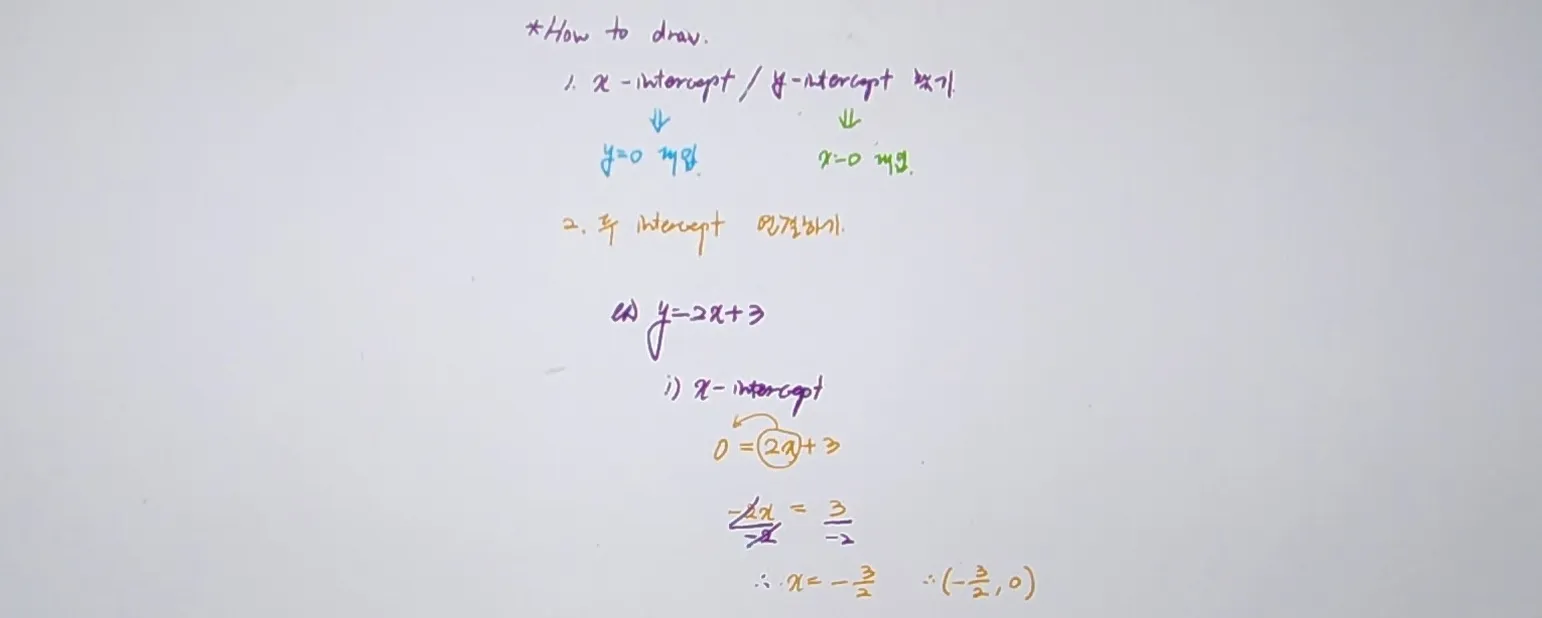 *How to draw.
1. x-intercept / y-intercept 찾기.
⇓ ⇓
y=0 대입. x=0 대입.
2. 두 intercept 연결하기.
ex) y=2x+3
i) x-intercept
0 = 2x + 3
-2x/-2 = 3/-2
∴ x = -3/2 ∴ (-3/2, 0)